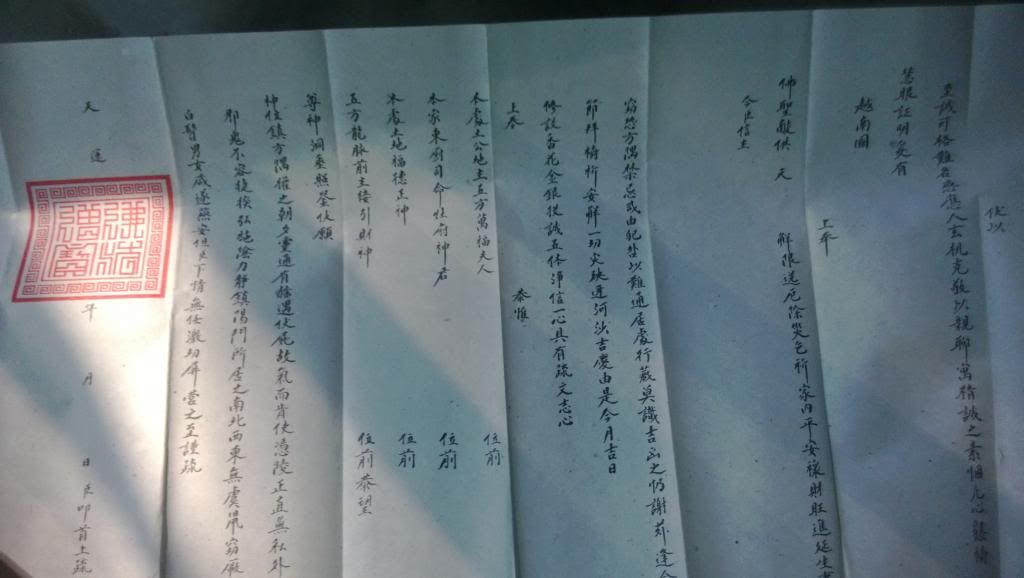 伏以
至誠可格難在感應人玄机克敬以親聊寓精誠之素悃凡心懇禱
慧眼証明爰有
越南國
上奉
佛聖敬供天 解限送厄除災乞祈家内平安禄財旺進延生
今臣信主
窃念方隅禁忌或由犯禁以難通居處行藏莫識吉凶之仍謝茲逢今
節拜禱祈安解一切灾殃逓迎吉慶由是今月吉日
修設香花金銀投誠五体淨信一心具有疏文志心
上奏 恭惟
本處土公地主五方萬福夫人 位前
本家東廚司命灶府神君 位前
本處土地福德正神 位前
五方龍脉前主接引財神 位前恭望
尊神 洞垂照鉴伏願
神位鎮方隅權之朝夕靈通有 氣而肯使憑陵正直無私外
邪鬼不容 弘施陰力靜鎮陽門所居之南北西東無虞
男女咸遂 安但臣下情無任激切屏营之至謹疏
天運 年 月 日臣叩首上疏